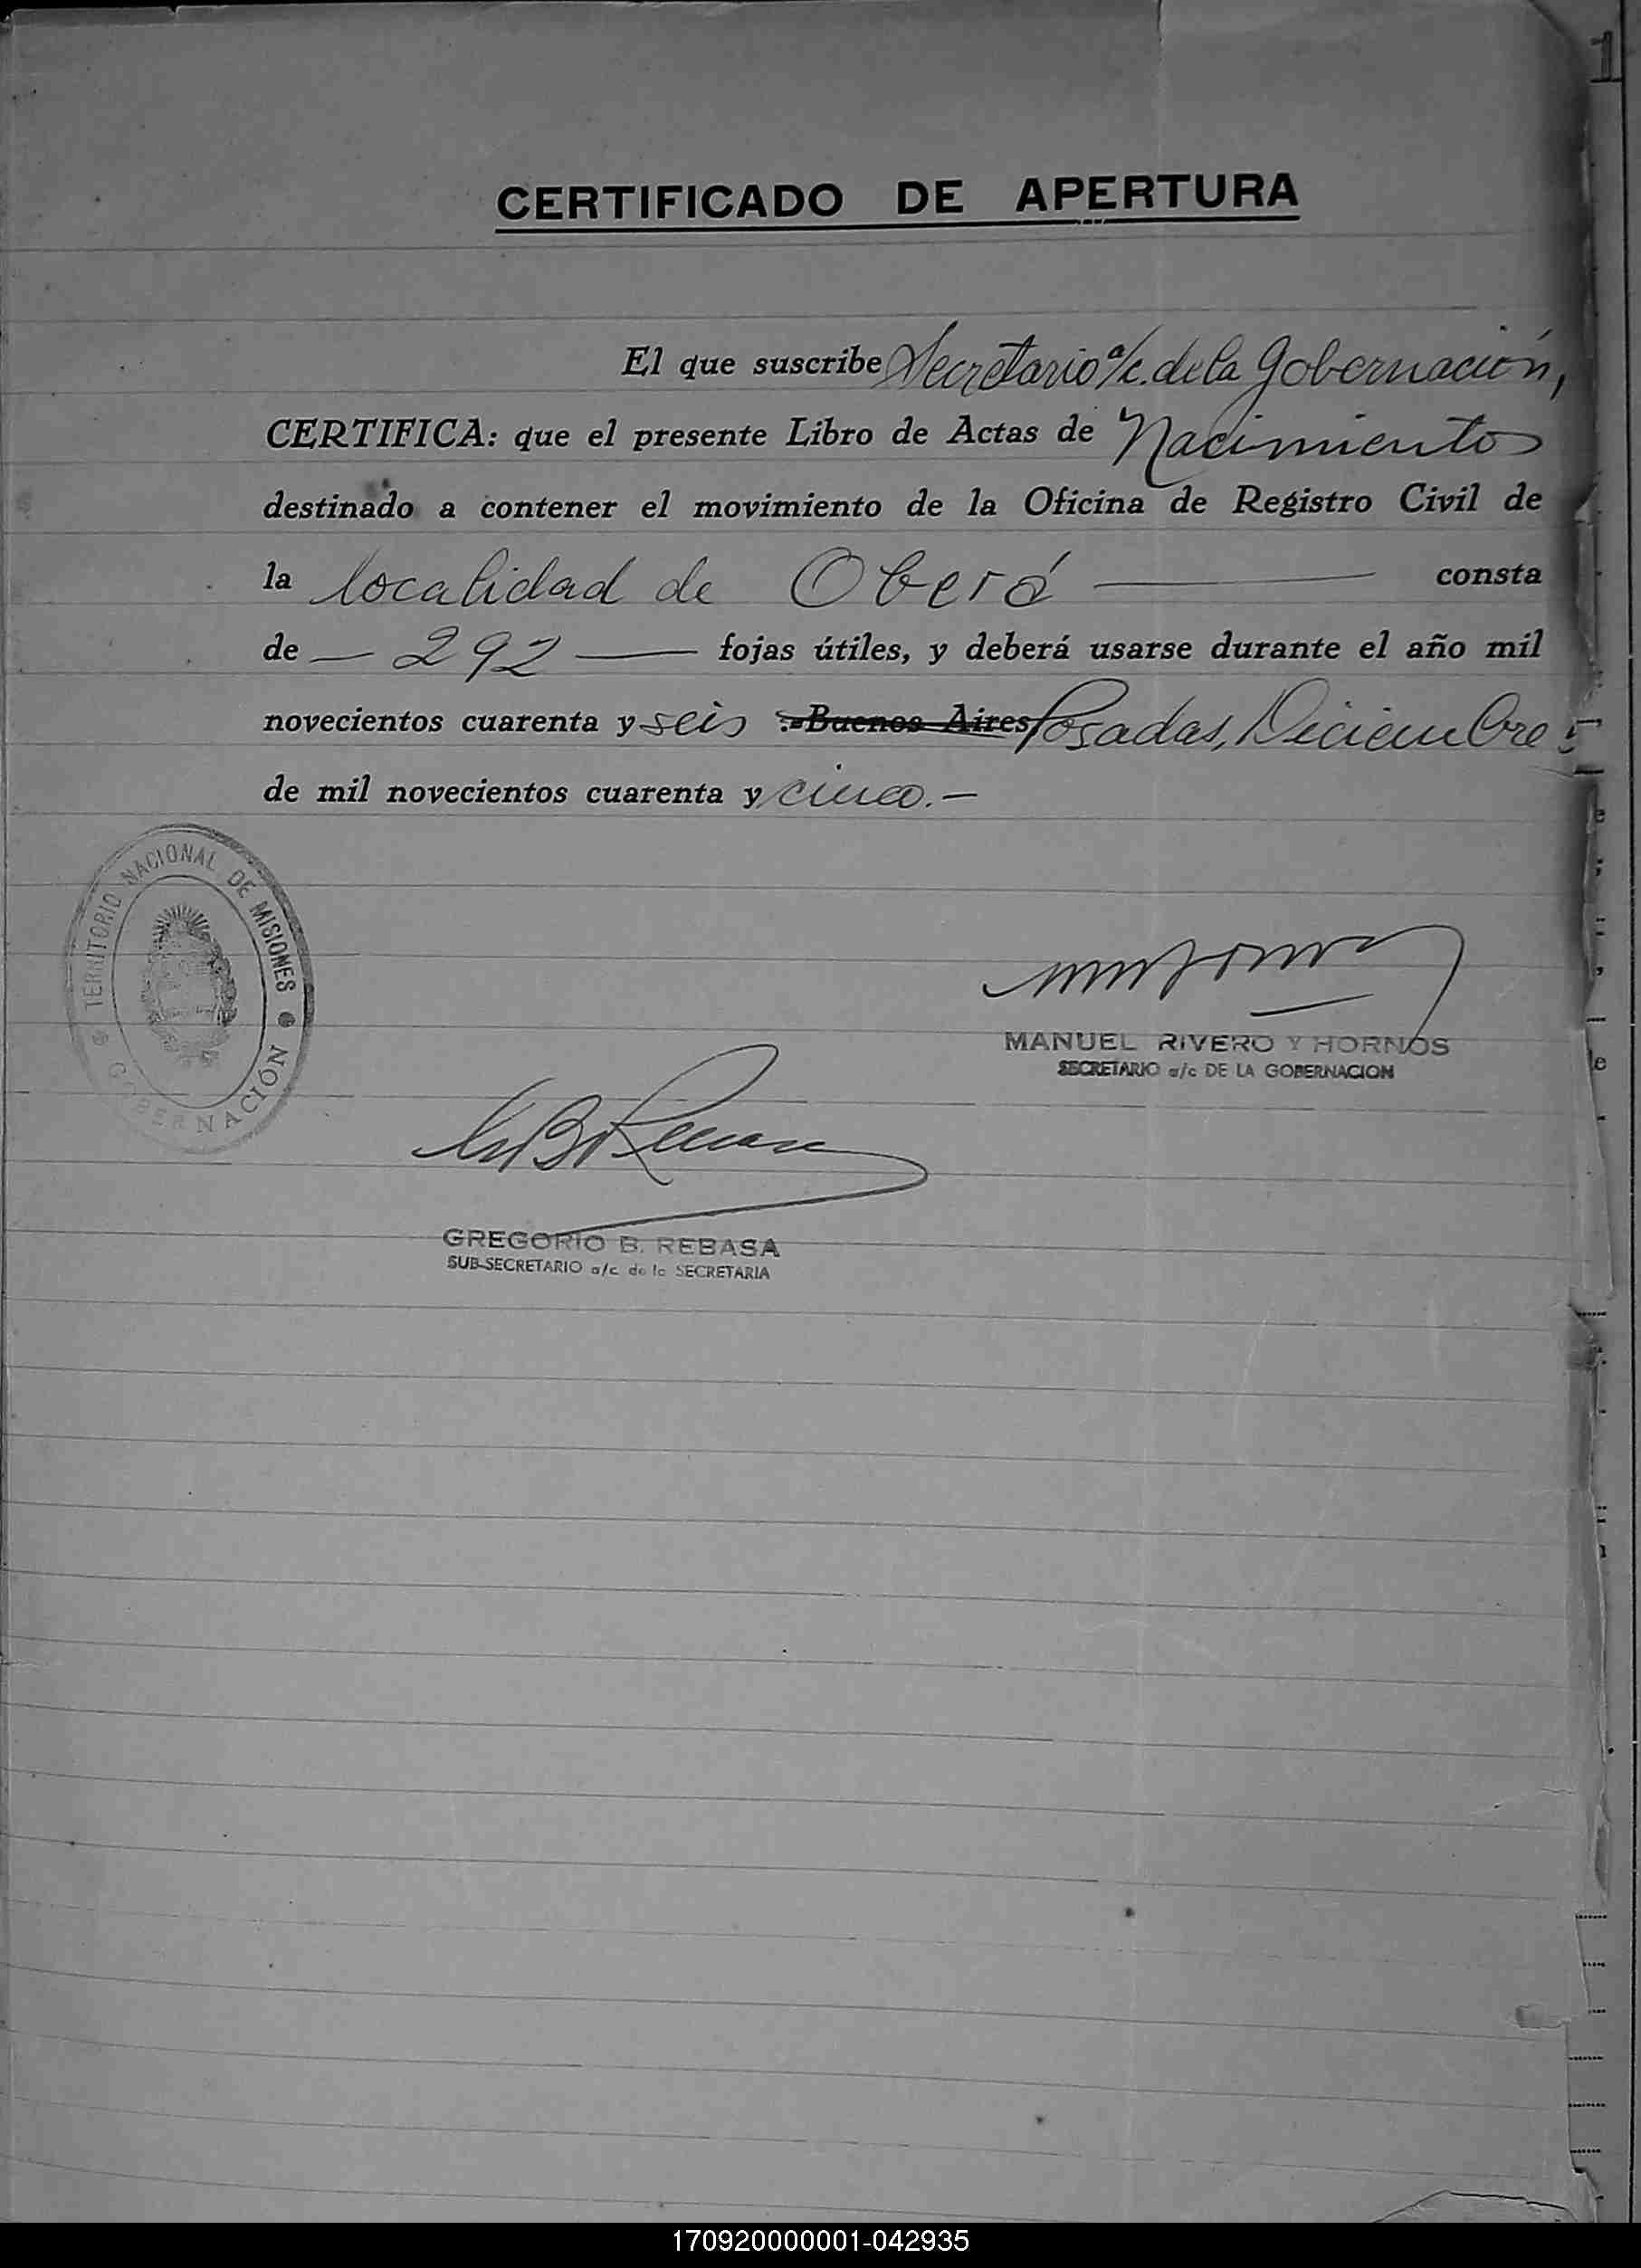 1
CERTIFICADO DE APERTURA
El que suscribe Secretario a/c. de la Gobernación,
CERTIFICA: que el presente Libro de Actas de Nacimientos
destinado a contener el movimiento de la Oficina de Registro Civil de
la localidad de Oberá consta
de — 292 — fojas útiles, y deberá usarse durante el año mil
novecientos cuarenta y seis .-Buenos Aires Posadas, Diciembre 5
de mil novecientos cuarenta y cinco.—
TERRITORIO NACIONAL DE MISIONES
GOBERNACIÓN
MANUEL RIVERO Y HORNOS
SECRETARIO a/c DE LA GOBERNACION
GREGORIO B. REBASA
SUB-SECRETARIO a/c de la SECRETARIA
170920000001-042935